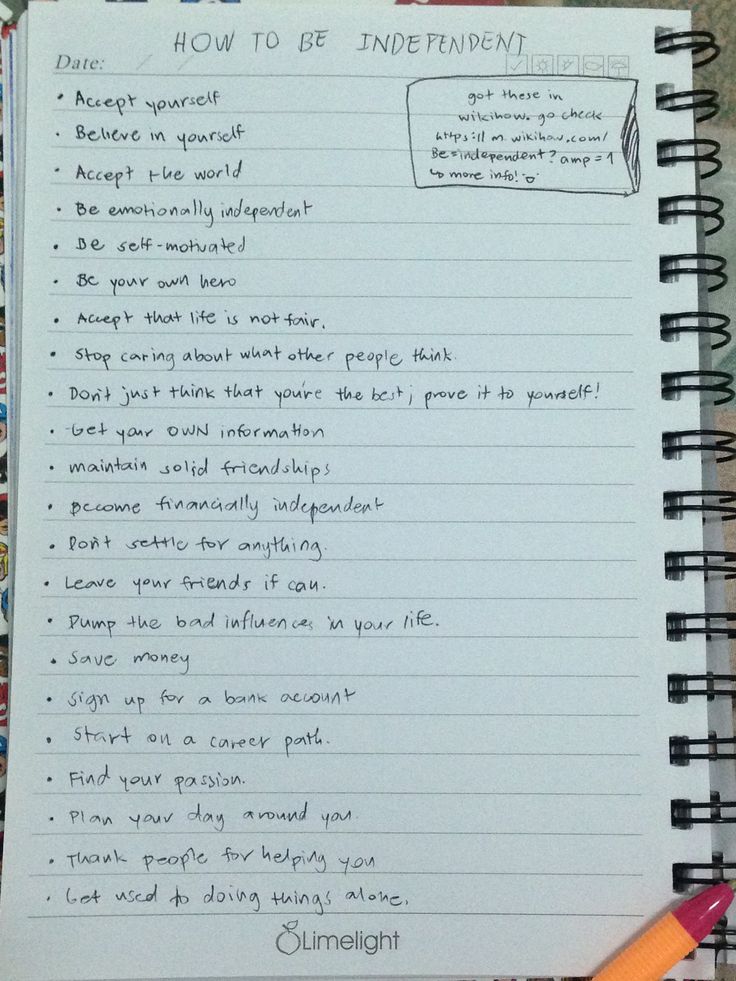 HOW TO BE INDEPENDENT
Date: / /
got these in
wikihow. go check
https://m.wikihow.com/
Be-independent?amp=1
↳ more info!
• Accept yourself
• Believe in yourself
• Accept the world
• Be emotionally independent
• Be self-motivated
• Be your own hero
• Accept that life is not fair.
• Stop caring about what other people think.
• Don't just think that you're the best; prove it to yourself!
• Get your OWN information
• maintain solid friendships
• Become financially independent
• Don't settle for anything.
• Leave your friends if can.
• Dump the bad influences in your life.
• Save money
• Sign up for a bank account
• Start on a career path.
• Find your passion.
• Plan your day around you.
• Thank people for helping you
• Get used to doing things alone.
Limelight